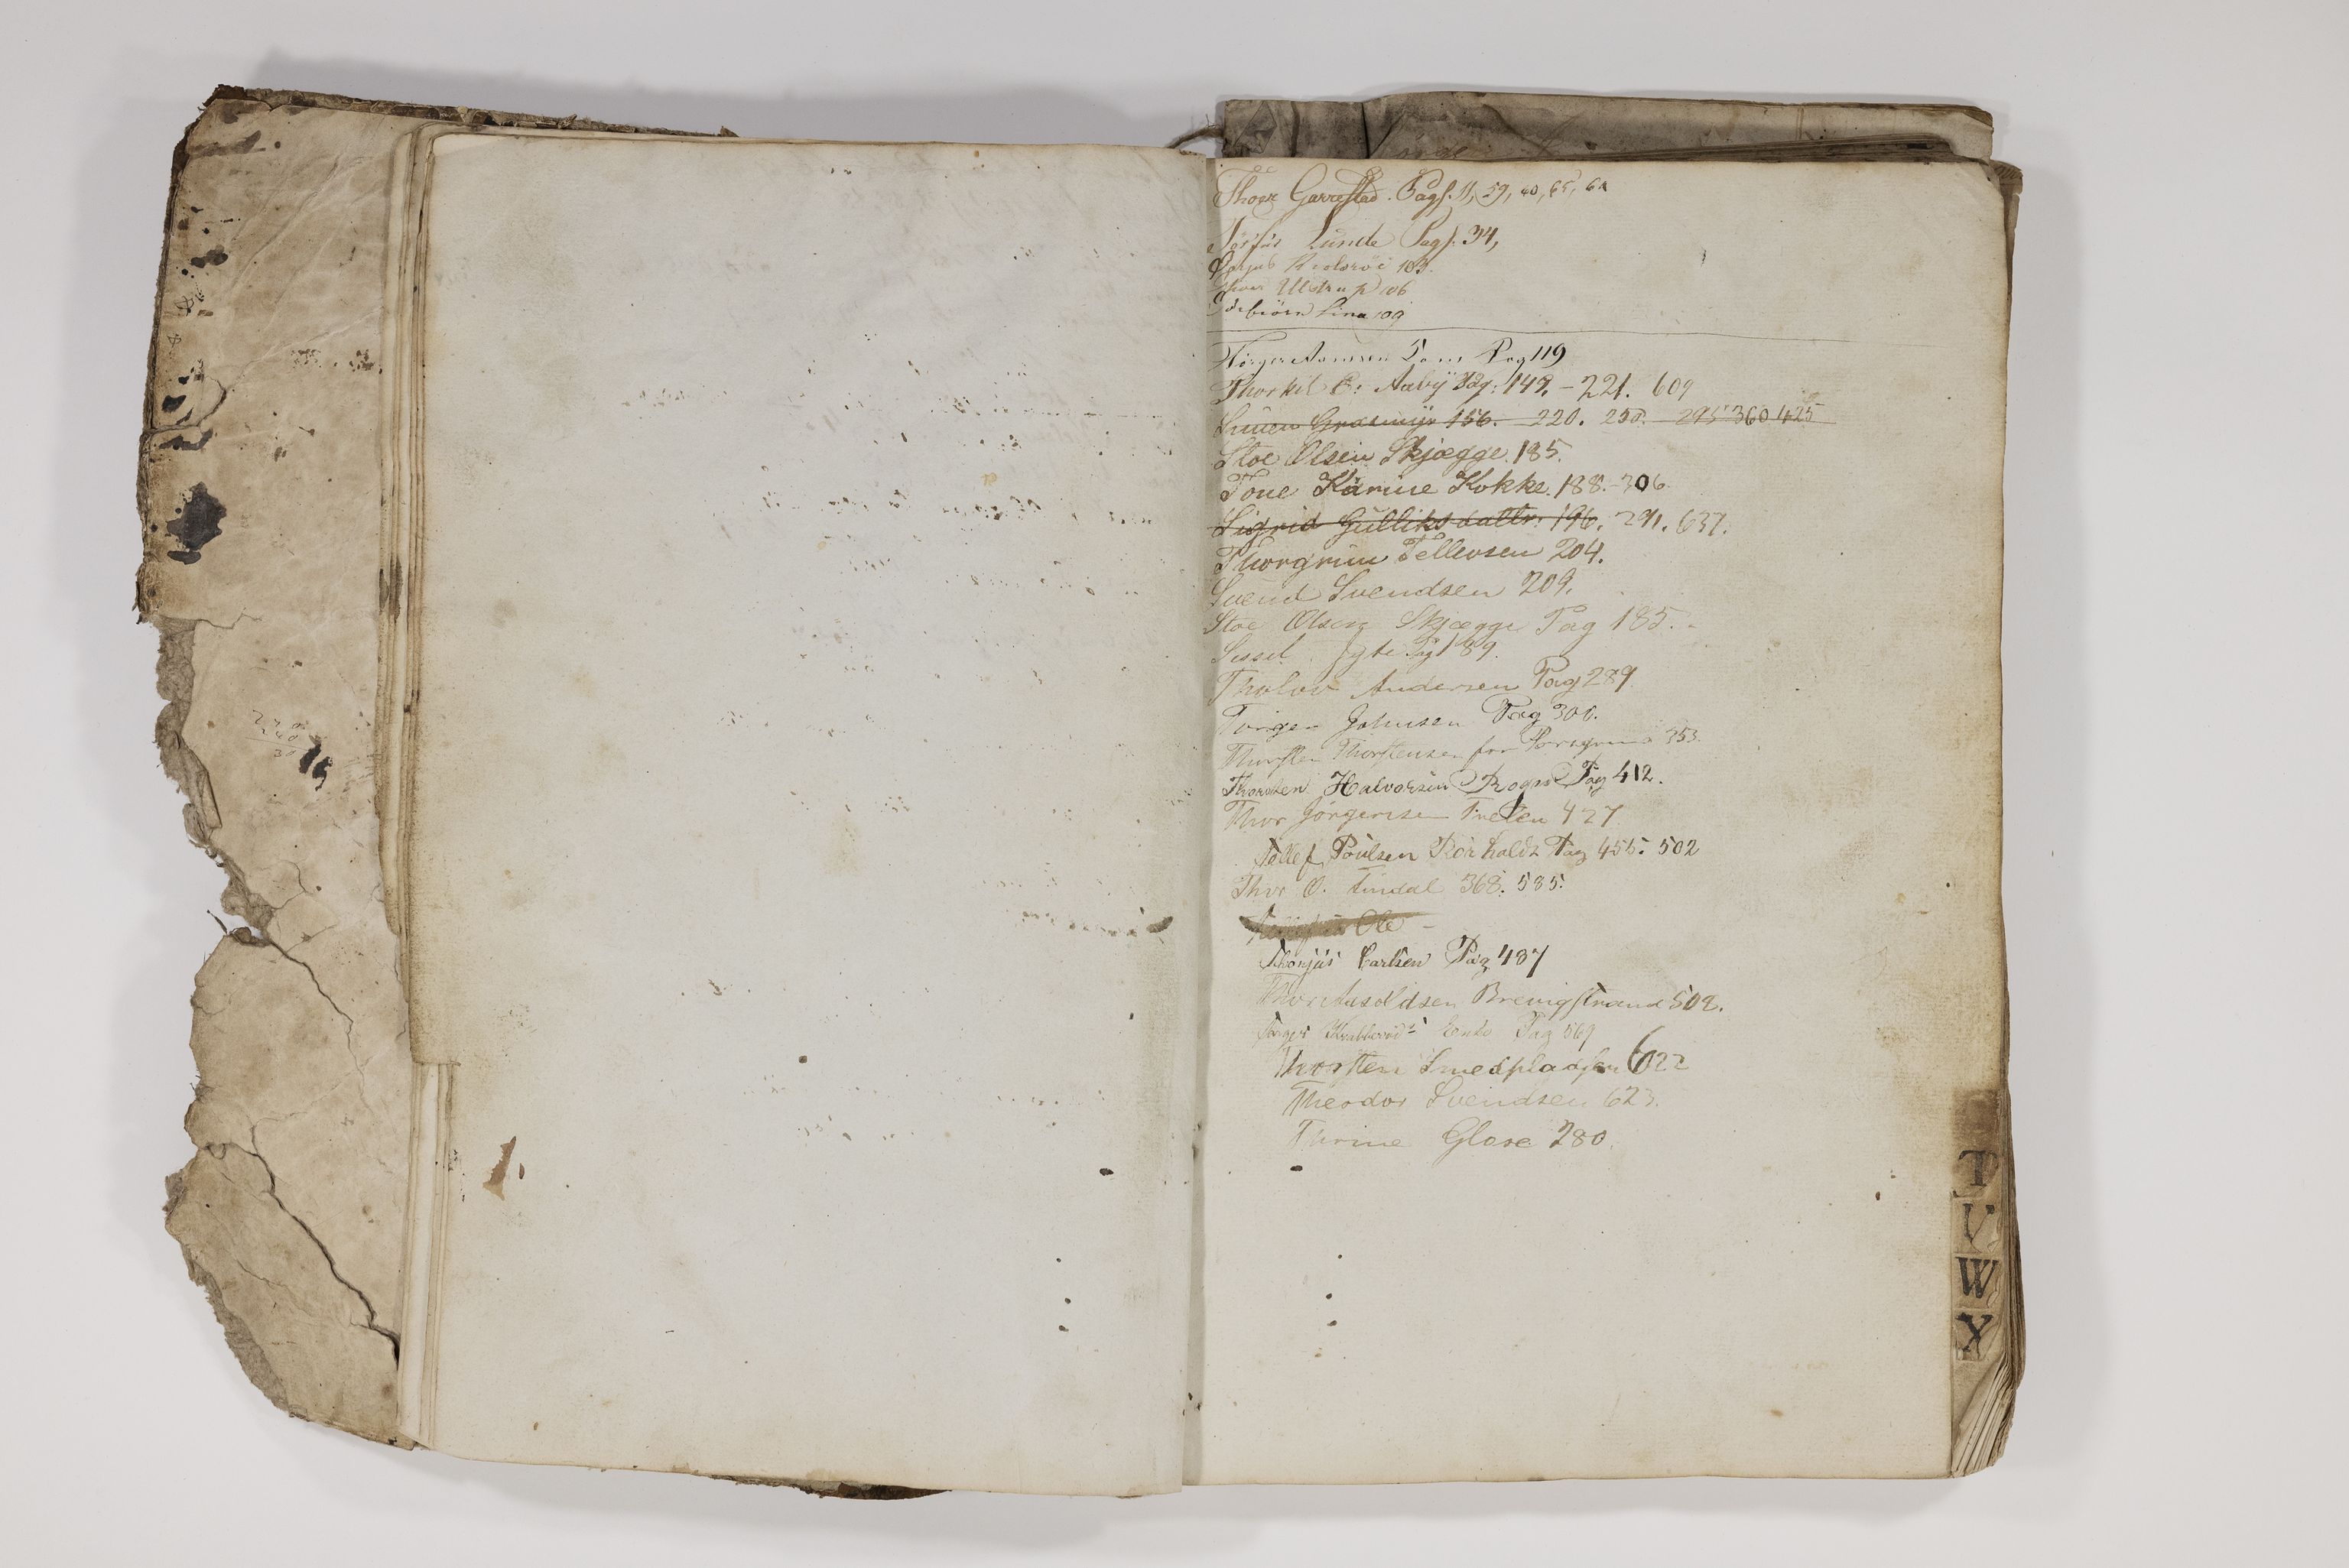 Thoer Garrestad. Pagf. 11, 59, 60, 65, 61
Lunde Pagf. 34,
103.
Ulstrup 106
Torbiörn Lina 109
Pag 119
Thorkil C: Aaby Pag: 142. – 221. 609
Grasmyr 156. – 220. 258. – 295 360 425
Stoe Olsen Skjægge. 185.
Tone Karine Kokke. 188. – 306
Sigrid Gulliksdattr. 196. 291. 637.
Thorgrim Tellevsen 204.
Svend Svendsen 209.
Stoe Olsen Skjægge Pag 185. -
Sissel Pag 189.
Tholov Andersen Pag 289
Torger Johnsen Pag 300.
Thorsten Thorstensen fra Porsgrund 353
Thorsten Halvorsen Pag 412.
Thor Jörgensen 427
Tollef Poulsen Rörholdt Pag 455. 502
Thor O. Tindal 368. 585.
Ole –
Thorjus Carlsen Pag 487
Thor Aasoldsen Brevigstrand 502.
Krabberöd Enke Pag 569
Thorsten Smedpladsen 622
Theodor Svendsen 623.
Thrine Glose 280.
T
V
W
X